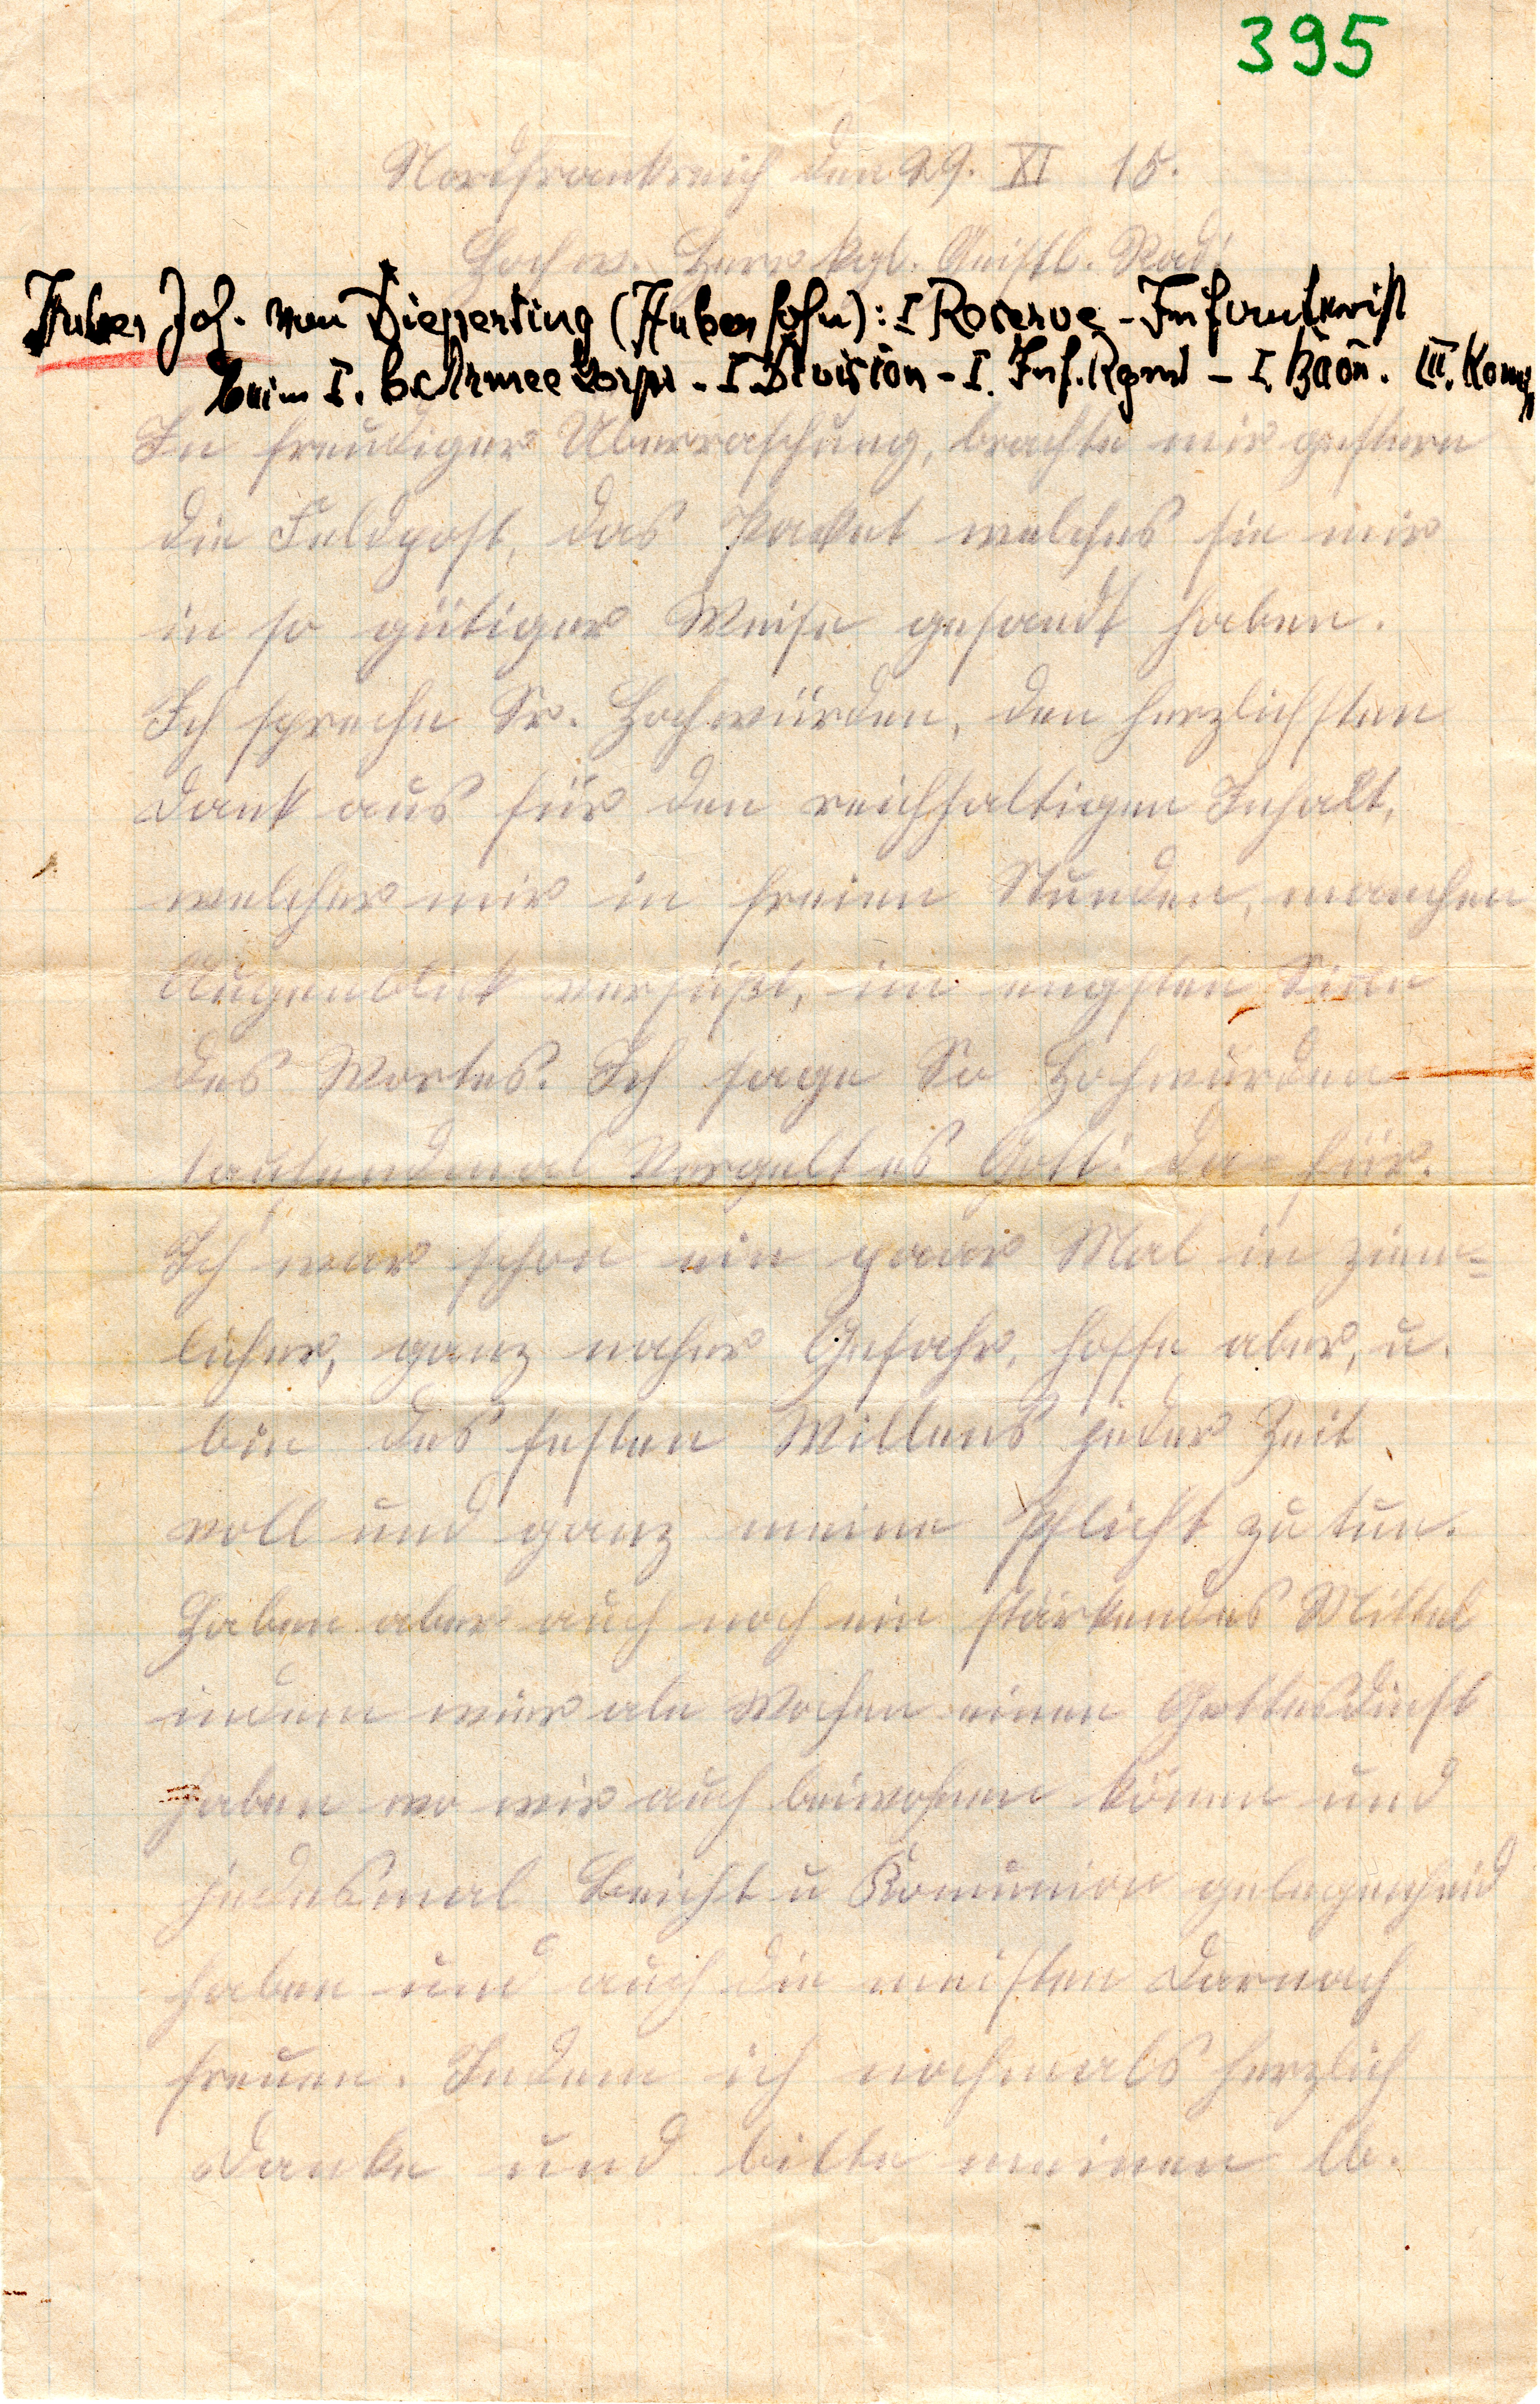 395
Nordfrankreich den 29. XI 15.
Hochw. Herr kgl. Geistl. Rad!
Huber Joh. von Dieperting (Hubersohn): I Reserve-Infanterist
beim I. b. Armee Korps - I Division - I. Inf. Rgmt - I. Baon. III. Komp
In freudiger Überraschung, brachte mir gestern
die Feldpost, das Packet welches sie mir
in so gütiger Weise gesandt haben.
Ich spreche Sr. Hochwürden, den herzlichsten
Dank aus für den reichhaltigen Inhalt,
welcher mir in freien Stunden, manchen
Augenblick versüßt, im engsten Sinn
des Wortes. Ich sage Sr Hochwürden
tausendmal Vergelt es Gott! da-für.
Ich war schon ein paar Mal in ziem=
licher, ganz naher Gefahr, hoffe aber, u.
bin des festen Willens jeder Zeit
voll und ganz meine Pflicht zu tun.
Haben aber auch noch ein stärkendes Mittel
indem wier ale Wochen einen Gottesdinst
haben wo wir auch beiwohnen könen und
jedesmal Beicht u Komunion gelegenheid
haben und auch die meisten darnach
freuen. Indem ich nochmals herzlich
danke und bitte meinen lb.